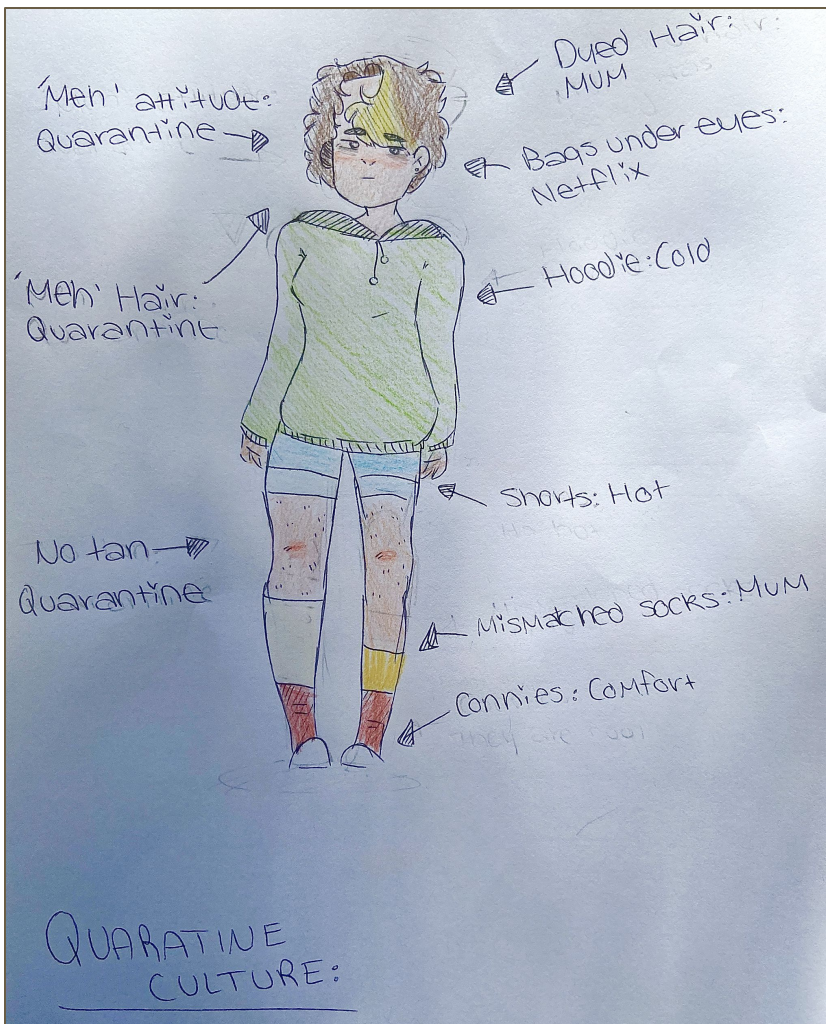 'Meh' attitude:
Quarantine
Dyed Hair:
MUM
Bags under eyes:
Netflix
'Meh' Hair:
Quarantine
Hoodie: Cold
Shorts: Hot
No tan
Quarantine
Mismatched socks: MUM
Connies: Comfort
they are
QUARATINE
CULTURE: